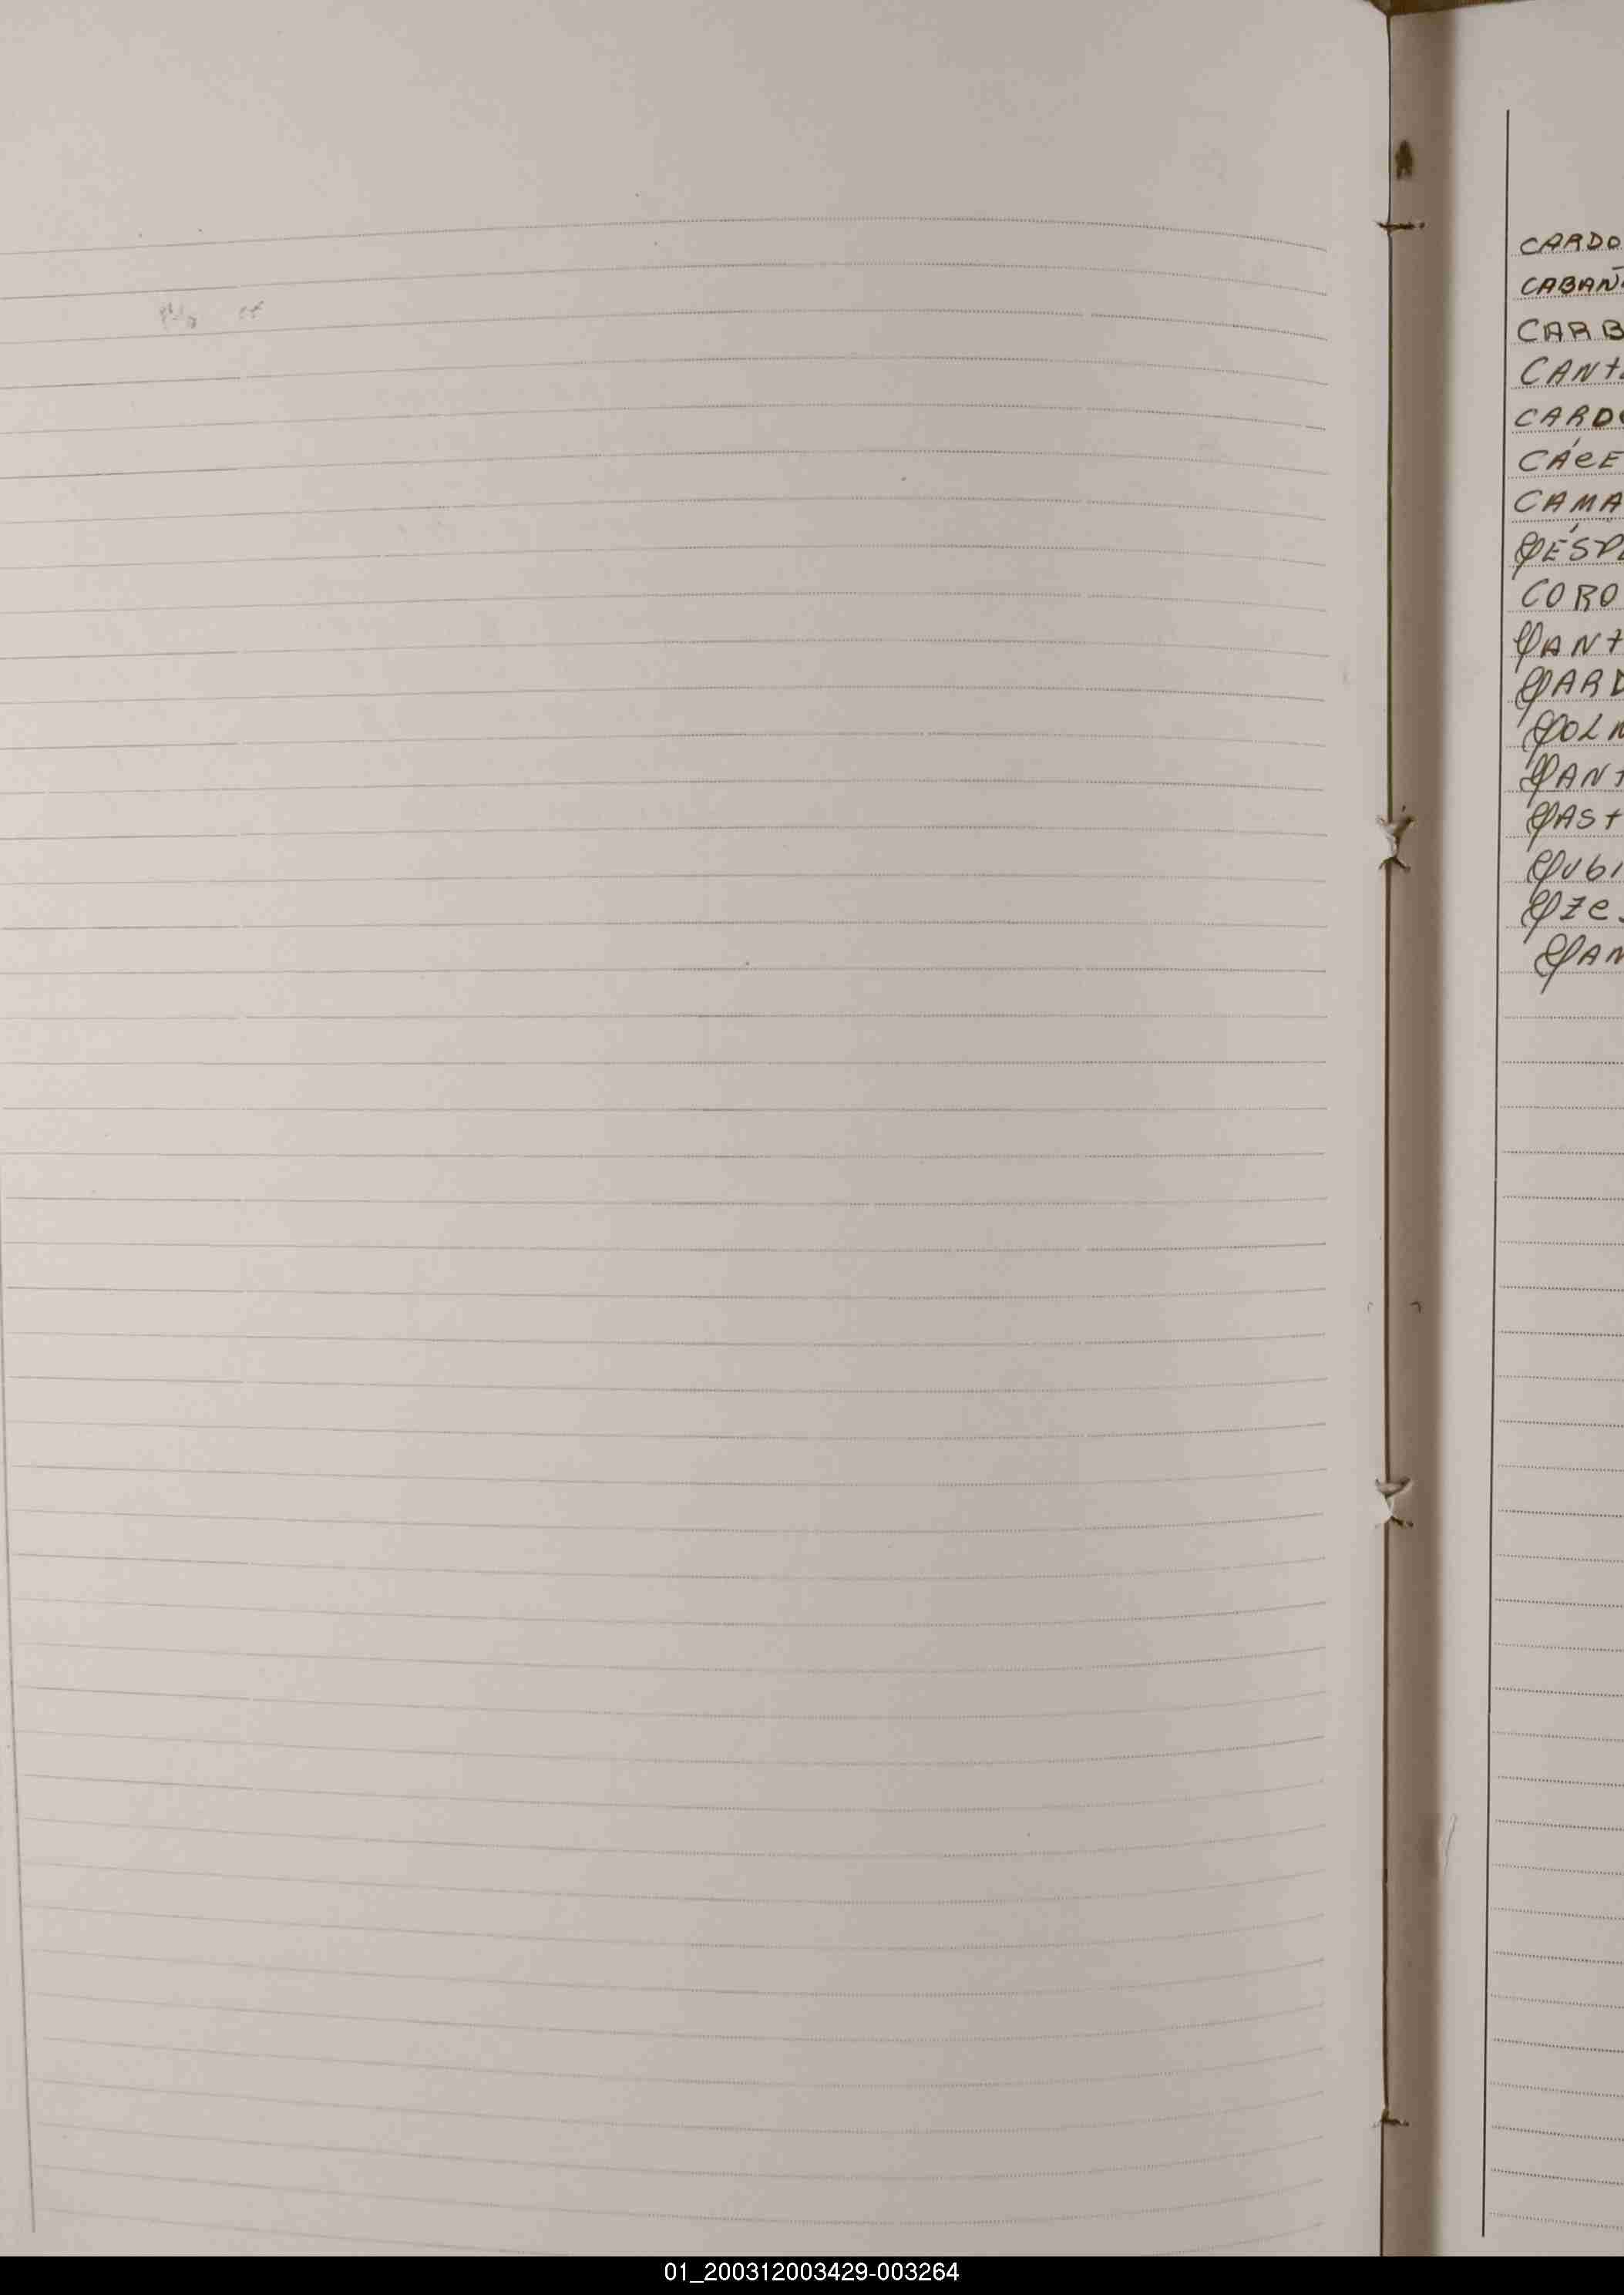 CARDO
CABAÑ
CARB
CANt
CARD
CÁCE
CAMA
CÉSP
CORO
CANT
CARD
COLM
CANt
CASt
CUbI
CAN
01_200312003429-003264